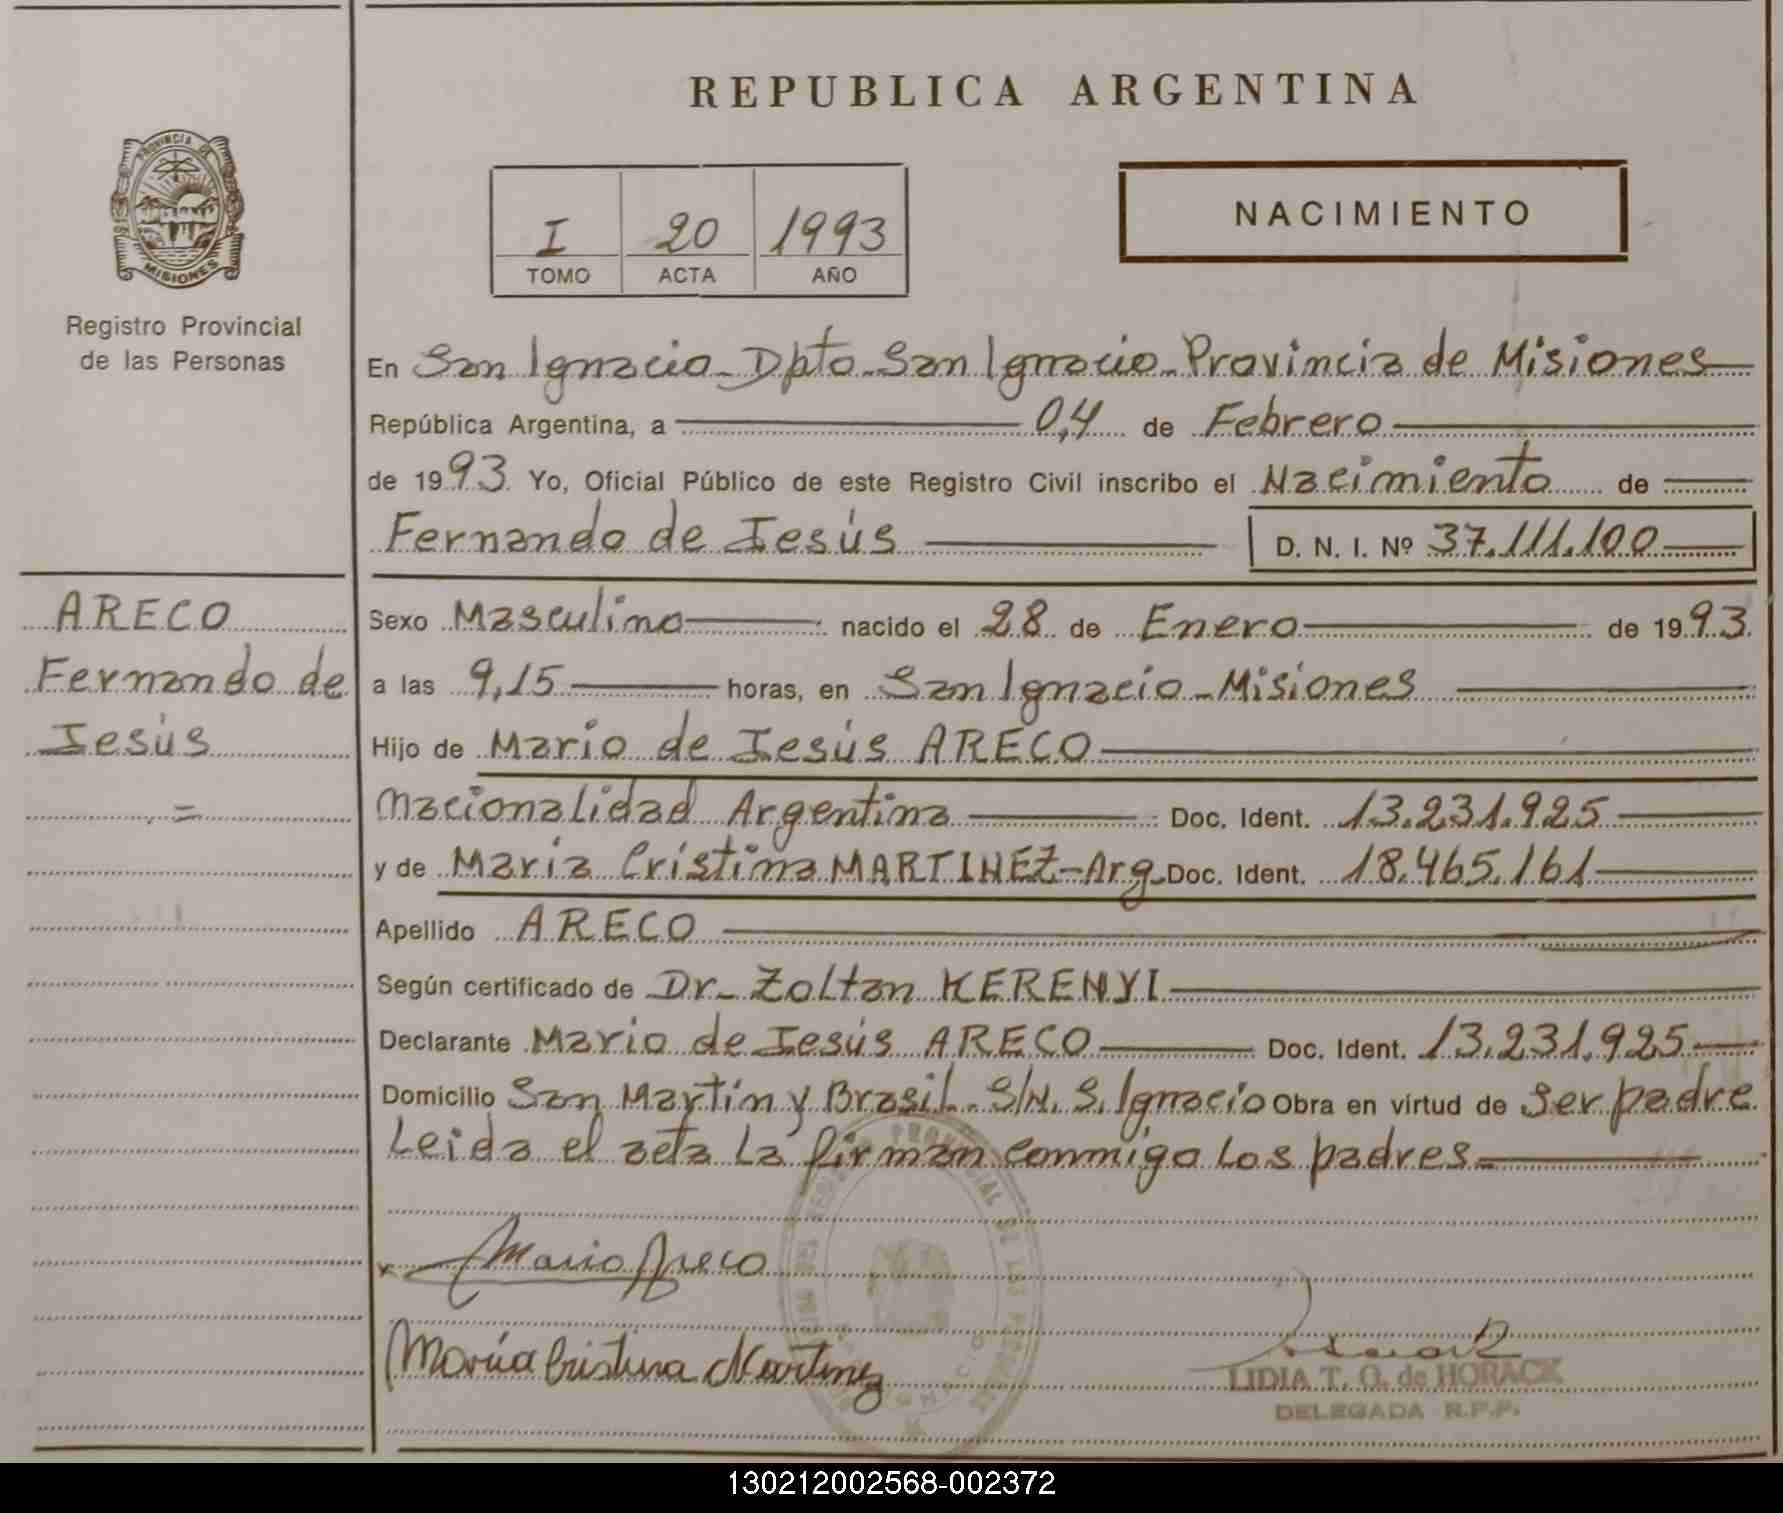 REPUBLICA ARGENTINA
PROVINCIA DE
MISIONES
Registro Provincial
de las Personas
I 20 1993
TOMO ACTA AÑO
NACIMIENTO
En San Ignacio - Dpto. San Ignacio - Provincia de Misiones
República Argentina, a 04 de Febrero
de 1993 Yo, Oficial Público de este Registro Civil inscribo el Nacimiento de
Fernando de Jesús D. N. I. Nº 37.111.100
ARECO
Fernando de
Jesús
Sexo Masculino nacido el 28 de Enero de 1993
a las 9,15 horas, en San Ignacio - Misiones
Hijo de Mario de Jesús ARECO
Nacionalidad Argentina Doc. Ident. 13.231.925
y de María Cristina MARTINEZ - Arg. Doc. Ident. 18.465.161
Apellido ARECO
Según certificado de Dr. Zoltan KERENYI
Declarante Mario de Jesús ARECO Doc. Ident. 13.231.925
Domicilio San Martín y Brasil. S/N. S. Ignacio Obra en virtud de ser padre
Leida el acta La firman conmigo Los padres
x Mario Areco
María Cristina Martinez
LIDIA T. O. de HORACK
DELEGADA R.P.P.
130212002568-002372